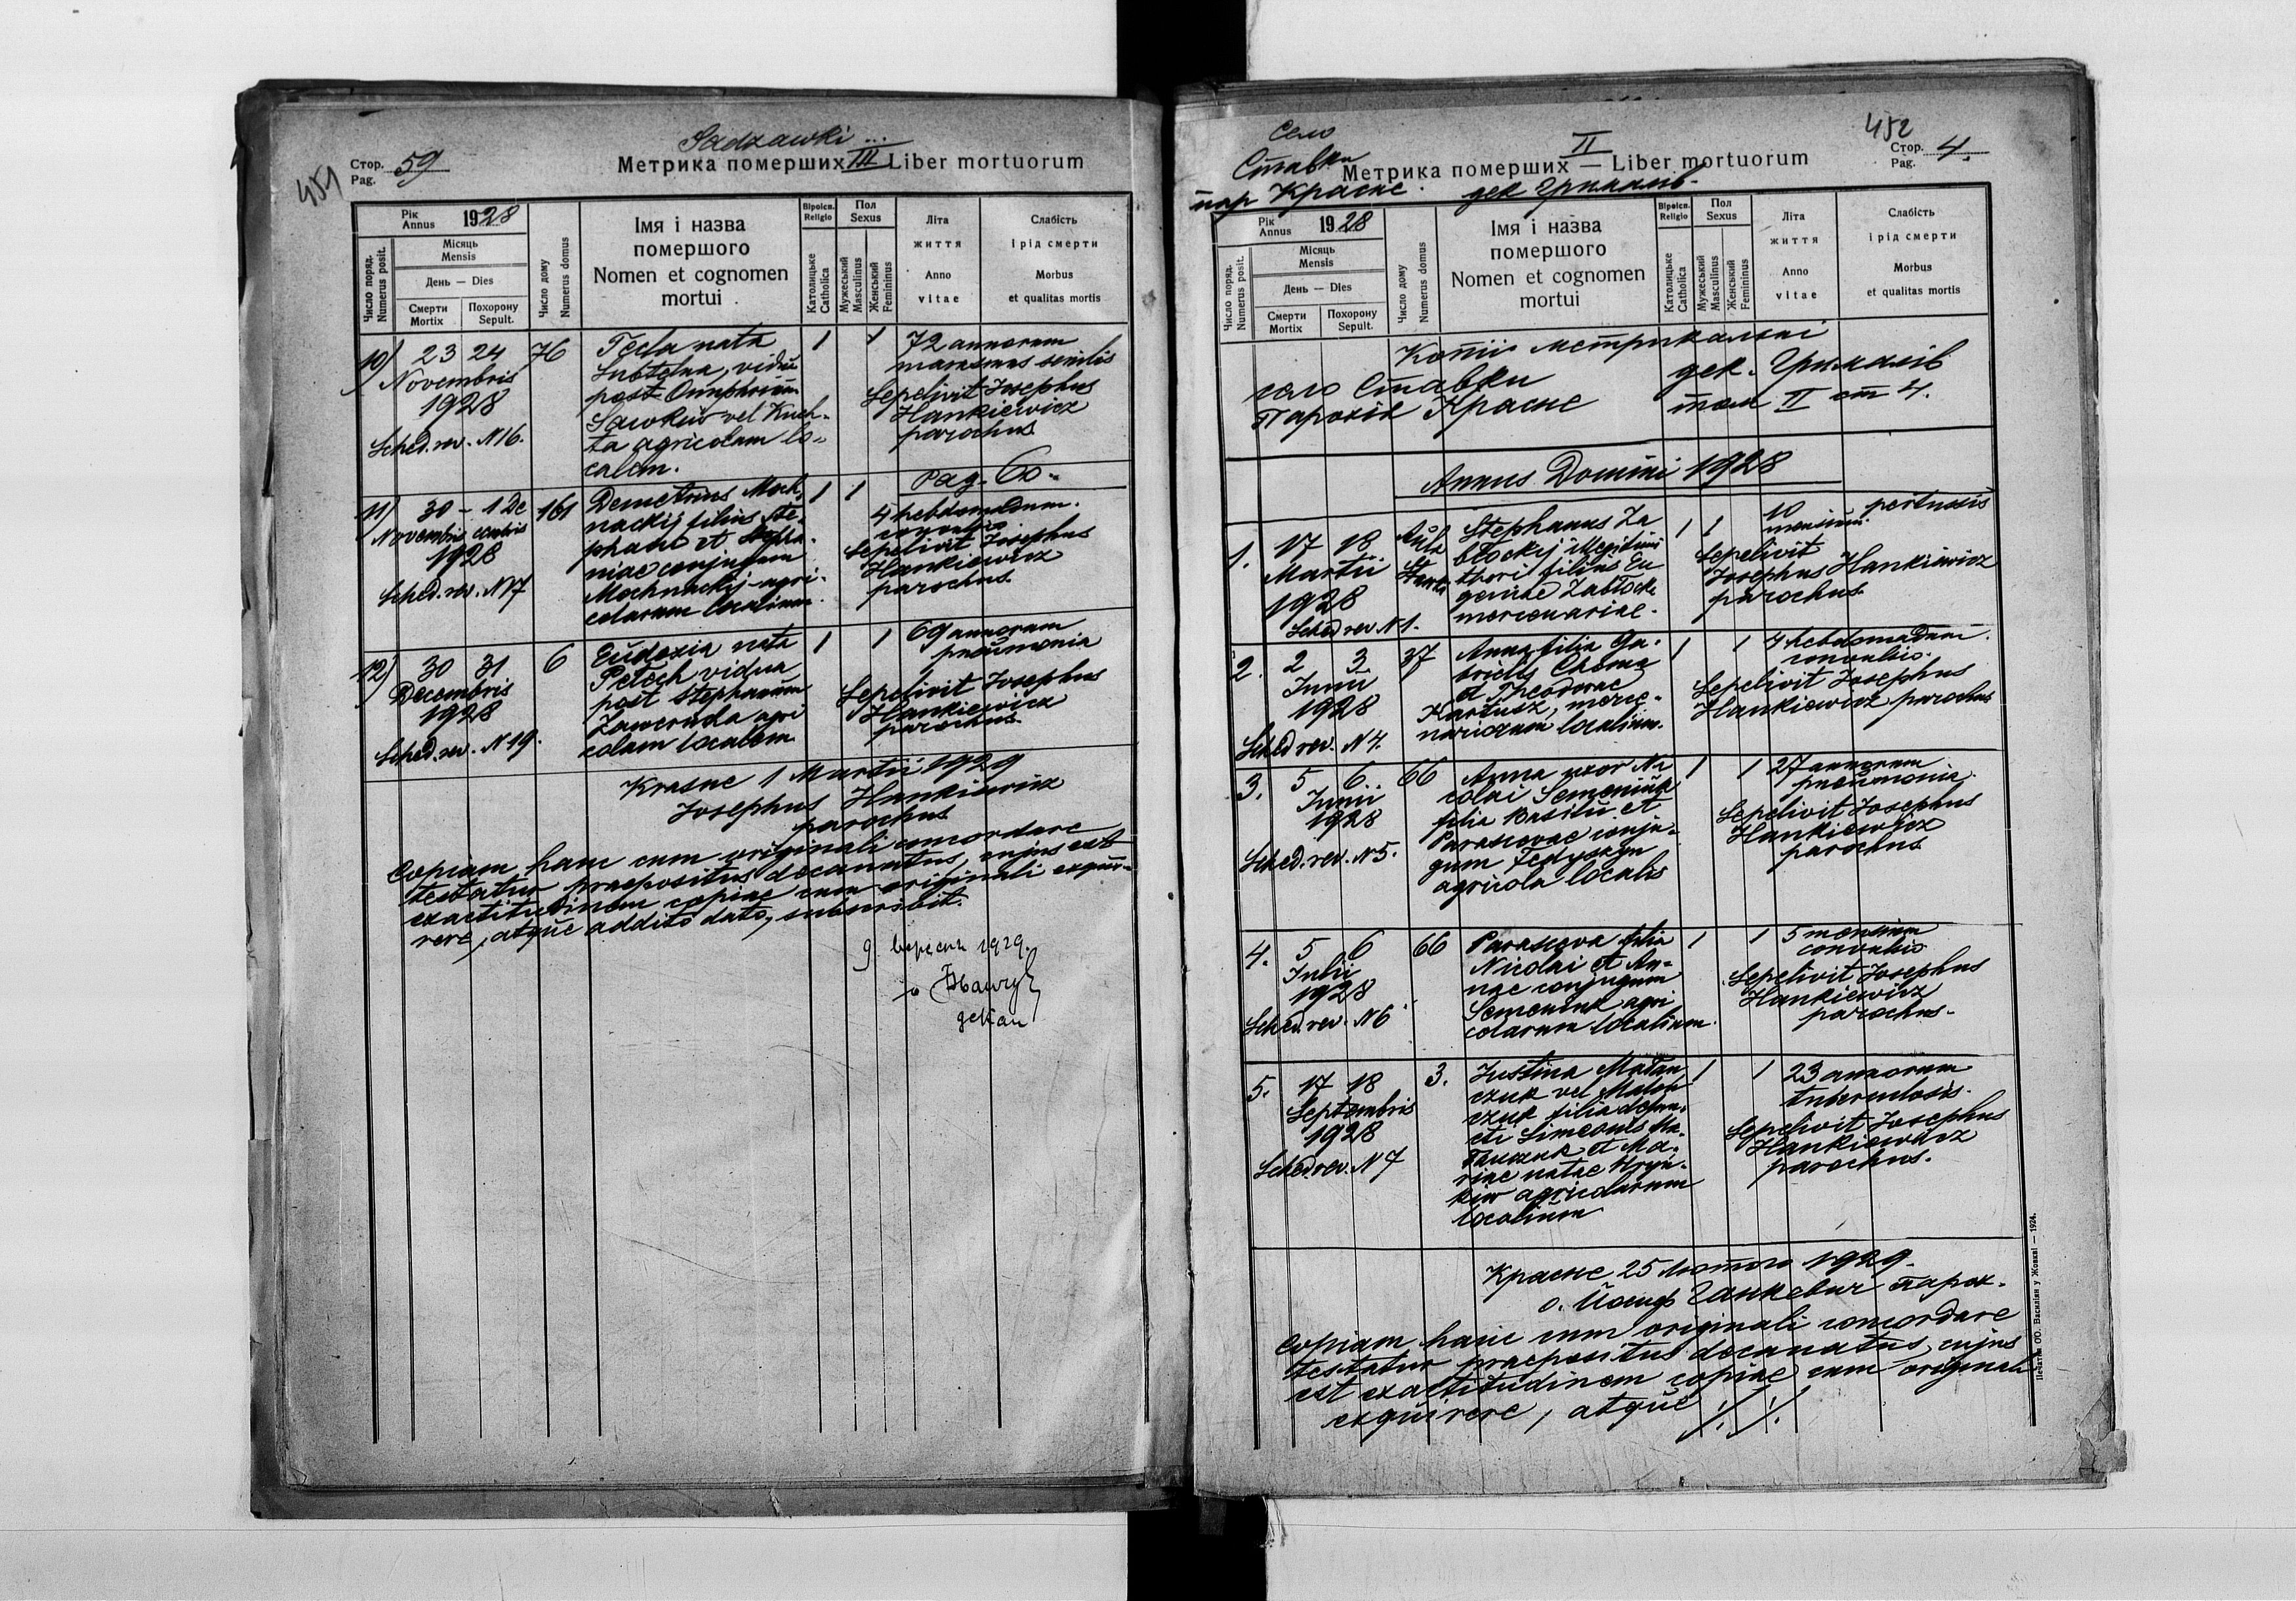 451
Стор. 59
Pag.
Sadzawki
Метрика померших III Liber mortuorum
Рік
Annus 1928
Місяць
Mensis
День — Dies
Смерти
Mortix
Похорону
Sepult.
Число поряд.
Numerus posit.
Число дому
Numerus domus
Імя і назва
помершого
Nomen et cognomen
mortui
Віроісп.
Religio
Католицьке
Catholica
Пол
Sexus
Мужеський
Masculinus
Женський
Femininus
Літа
життя
Anno
vitae
Слабість
і рід смерти
Morbus
et qualitas mortis
10) 23 24
Novembris
1928
Sched. rev. N 16.
76
Tecla nata
Subtelna, vidua
post Onuphrium
Sawkiw vel Kuch-
ta agricolam lo-
calem.
1 1
72 annorum
marasmus senilis
Sepelivit Josephus
Hankiewicz
parochus
Pag. 60.
11) 30 - 1 De
Novembris cembris
1928
Sched. rev. N 17
161
Demetrius Moch-
nackij filius Ste-
phani et Stepha-
niae conjugum
Mochnackij - agri-
colarum localium.
1 1
4 hebdomadum.
convulsio
Sepelivit Josephus
Hankiewicz
parochus.
12) 30 31
Decembris
1928
Sched. rev. N 19.
6
Eudoxia nata
Petech vidua
post Stephanum
Zaweruda agri
colam localem
1 1
69 annorum
pneumonia
Sepelivit Josephus
Hankiewicz
parochus.
Krasne 1 Martii 1929
Josephus Hankiewicz
parochus
Copiam hanc cum originali concordare
testatur praepositus decanatus, cujus est
exactitudinem copiae cum originali exqui-
rere, atque addito dato, subscribit.
9 вересня 1929.
о
декан
452
Село
Ставки
пар Красне. дек Грималів
II
Метрика померших — Liber mortuorum
Стор. 4.
Pag.
Рік
Annus 1928
Місяць
Mensis
День — Dies
Смерти
Mortix
Похорону
Sepult.
Число поряд.
Numerus posit.
Число дому
Numerus domus
Імя і назва
помершого
Nomen et cognomen
mortui
Віроісп.
Religio
Католицьке
Catholica
Пол
Sexus
Мужеський
Masculinus
Женський
Femininus
Літа
життя
Anno
vitae
Слабість
і рід смерти
Morbus
et qualitas mortis
Копії метрикальні
село Ставки дек. Грималів
Парохія Красне том II ст 4.
Annus Domini 1928
1. 17 18
Martii
1928
Sched rev N 1.
Aula
Stawki
Stephanus Za
błockij illegitimi
thori filius Eu
geniae Zabłocka
mercenariae.
1 1
10
mensium. pertussis
Sepelivit
Josephus Hankiewicz
parochus.
2. 2 3
Junii
1928
Sched rev. N 4.
37
Anna filia Ga-
brielis Choma
et Theodorae
Kartusz, merce-
nariorum localium.
1 1
4 hebdomadum.
convulsio.
Sepelivit Josephus
Hankiewicz parochus
3. 5 6
Junii
1928
Sched. rev. N 5.
66
Anna uxor Ni
colai Semeniuk
filia Basilii et
Parascevae conju-
gum Fedyszyn
agricola localis
1 1
27 annorum
pneumonia.
Sepelivit Josephus
Hankiewicz
parochus.
4. 5 6
Julii
1928
Sched. rev. N 6
66
Parasceva filia
Nicolai et An-
nae conjugum
Semeniuk agri
colarum localium.
1 1
5 mensium
convulsio
Sepelivit Josephus
Hankiewicz
parochus.
5. 17 18
Septembris
1928
Sched. rev. N 7
3.
Justina Matan
czuk vel Maton
czuk filia defun-
cti Simeonis Ma-
tanczuk et Ma-
riae natae Hryń-
kiw agricolarum
localium
1 1
23 annorum
tuberculosis.
Sepelivit Josephus
Hankiewicz
parochus.
Красне 25 лютого 1929.
о. Йосиф Ганкевич парох.
Copiam hanc cum originali concordare
testatur praepositus decanatus, cujus
est exactitudinem copiae cum originali
exquirere, atque ·/. ·/.
Печатня ОО. Василіян у Жовкві — 1924.